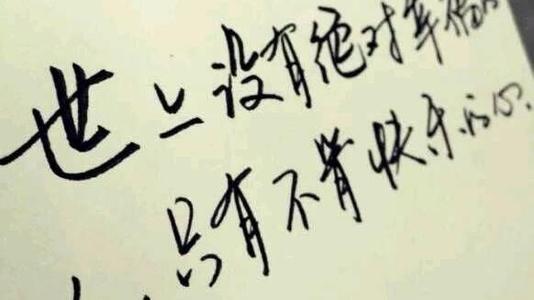 世上没有绝对幸福的
只有不肯快乐的心.